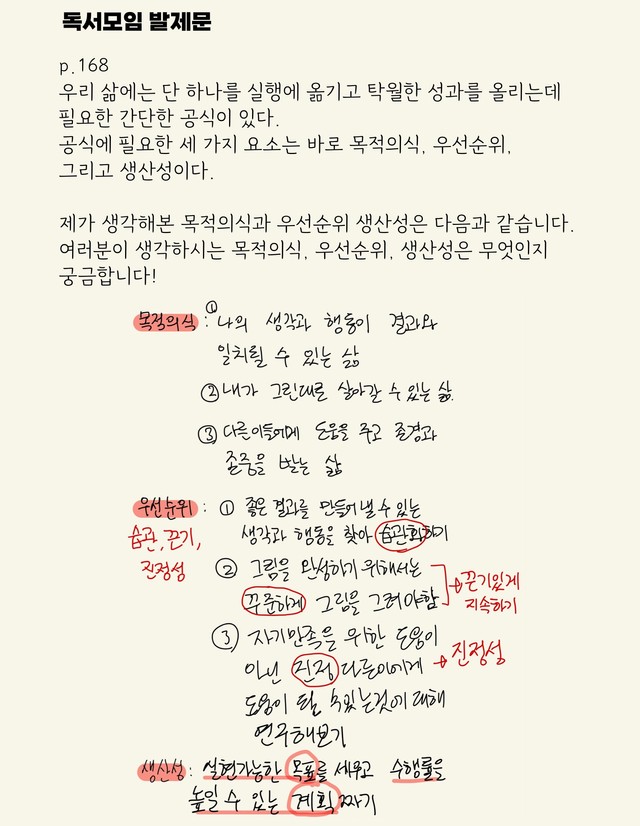 독서모임 발제문
p.168
우리 삶에는 단 하나를 실행에 옮기고 탁월한 성과를 올리는데
필요한 간단한 공식이 있다.
공식에 필요한 세 가지 요소는 바로 목적의식, 우선순위,
그리고 생산성이다.
제가 생각해본 목적의식과 우선순위 생산성은 다음과 같습니다.
여러분이 생각하시는 목적의식, 우선순위, 생산성은 무엇인지
궁금합니다!
목적의식 : ① 나의 생각과 행동이 결과와
일치될 수 있는 삶
② 내가 그린대로 살아갈 수 있는 삶.
③ 다른이들에게 도움을 주고 존경과
존중을 받는 삶
우선순위 : ① 좋은 결과를 만들어 낼 수 있는
습관, 끈기, 생각과 행동을 찾아 습관화하기
진정성 ② 그림을 완성하기 위해서는 → 끈기있게
꾸준하게 그림을 그려야함 지속하기
③ 자기만족을 위한 도움이
아닌 진정 다른이에게 → 진정성
도움이 될 수있는것에 대해
연구해보기
생산성 : 실현가능한 목표를 세우고 수행률을
높일 수 있는 계획 짜기